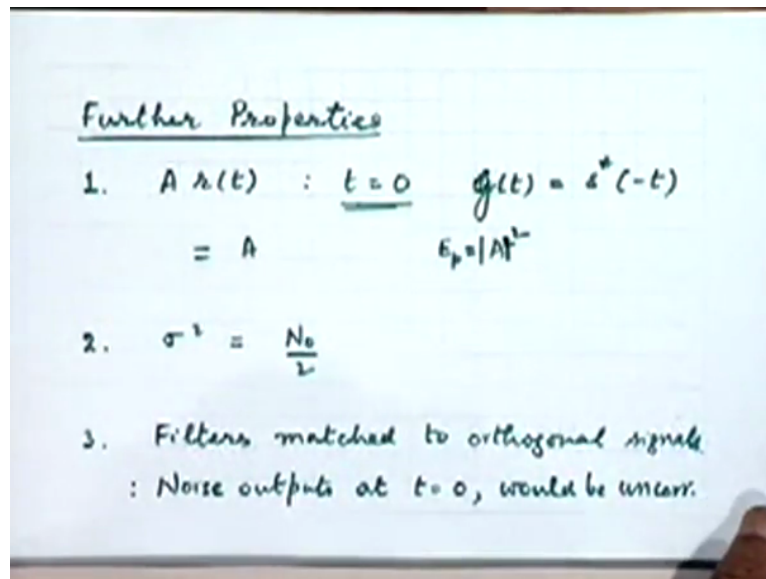 Further Properties
1. A r(t) : t = 0 g(t) = s*(-t)
= A Ep = |A|²
2. σ² = N₀/2
3. Filters matched to orthogonal signals
: Noise outputs at t = 0, would be uncorr.